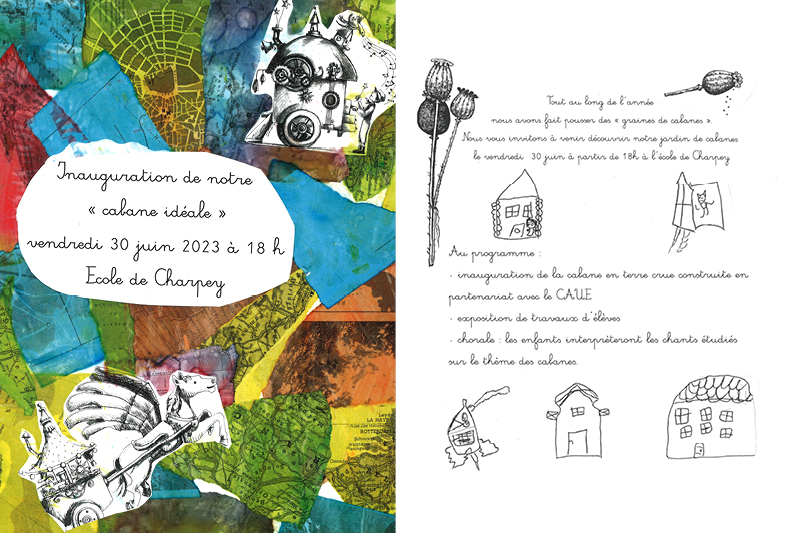 Inauguration de notre
« cabane idéale »
vendredi 30 juin 2023 à 18 h
Ecole de Charpey
LA HAYE
ROTTERDAM
Tout au long de l'année
nous avons fait pousser des « graines de cabanes ».
Nous vous invitons à venir découvrir notre jardin de cabanes
le vendredi 30 juin à partir de 18h à l'école de Charpey
Au programme :
- inauguration de la cabane en terre crue construite en
partenariat avec le C.A.U.E
- exposition de travaux d'élèves
- chorale : les enfants interprèteront les chants étudiés
sur le thème des cabanes.